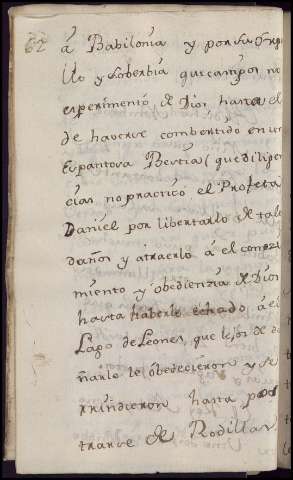 62
á Babilonia y por su orgu
llo y soberbia que campos no
experimentó de Dios hasta el
de haverse combertido en un
Espantosa Bestia (que dilijen
cias no practicó el Profeta
Daniel por libertarlo de tale
daños y atraerlo á el conozi
miento y obedienzia de Dios
hasta haberle echado á el
Lago de Leones, que lejos de da
ñarle le obedecieron y se
rrindieron hasta pos
trarse de Rodillas